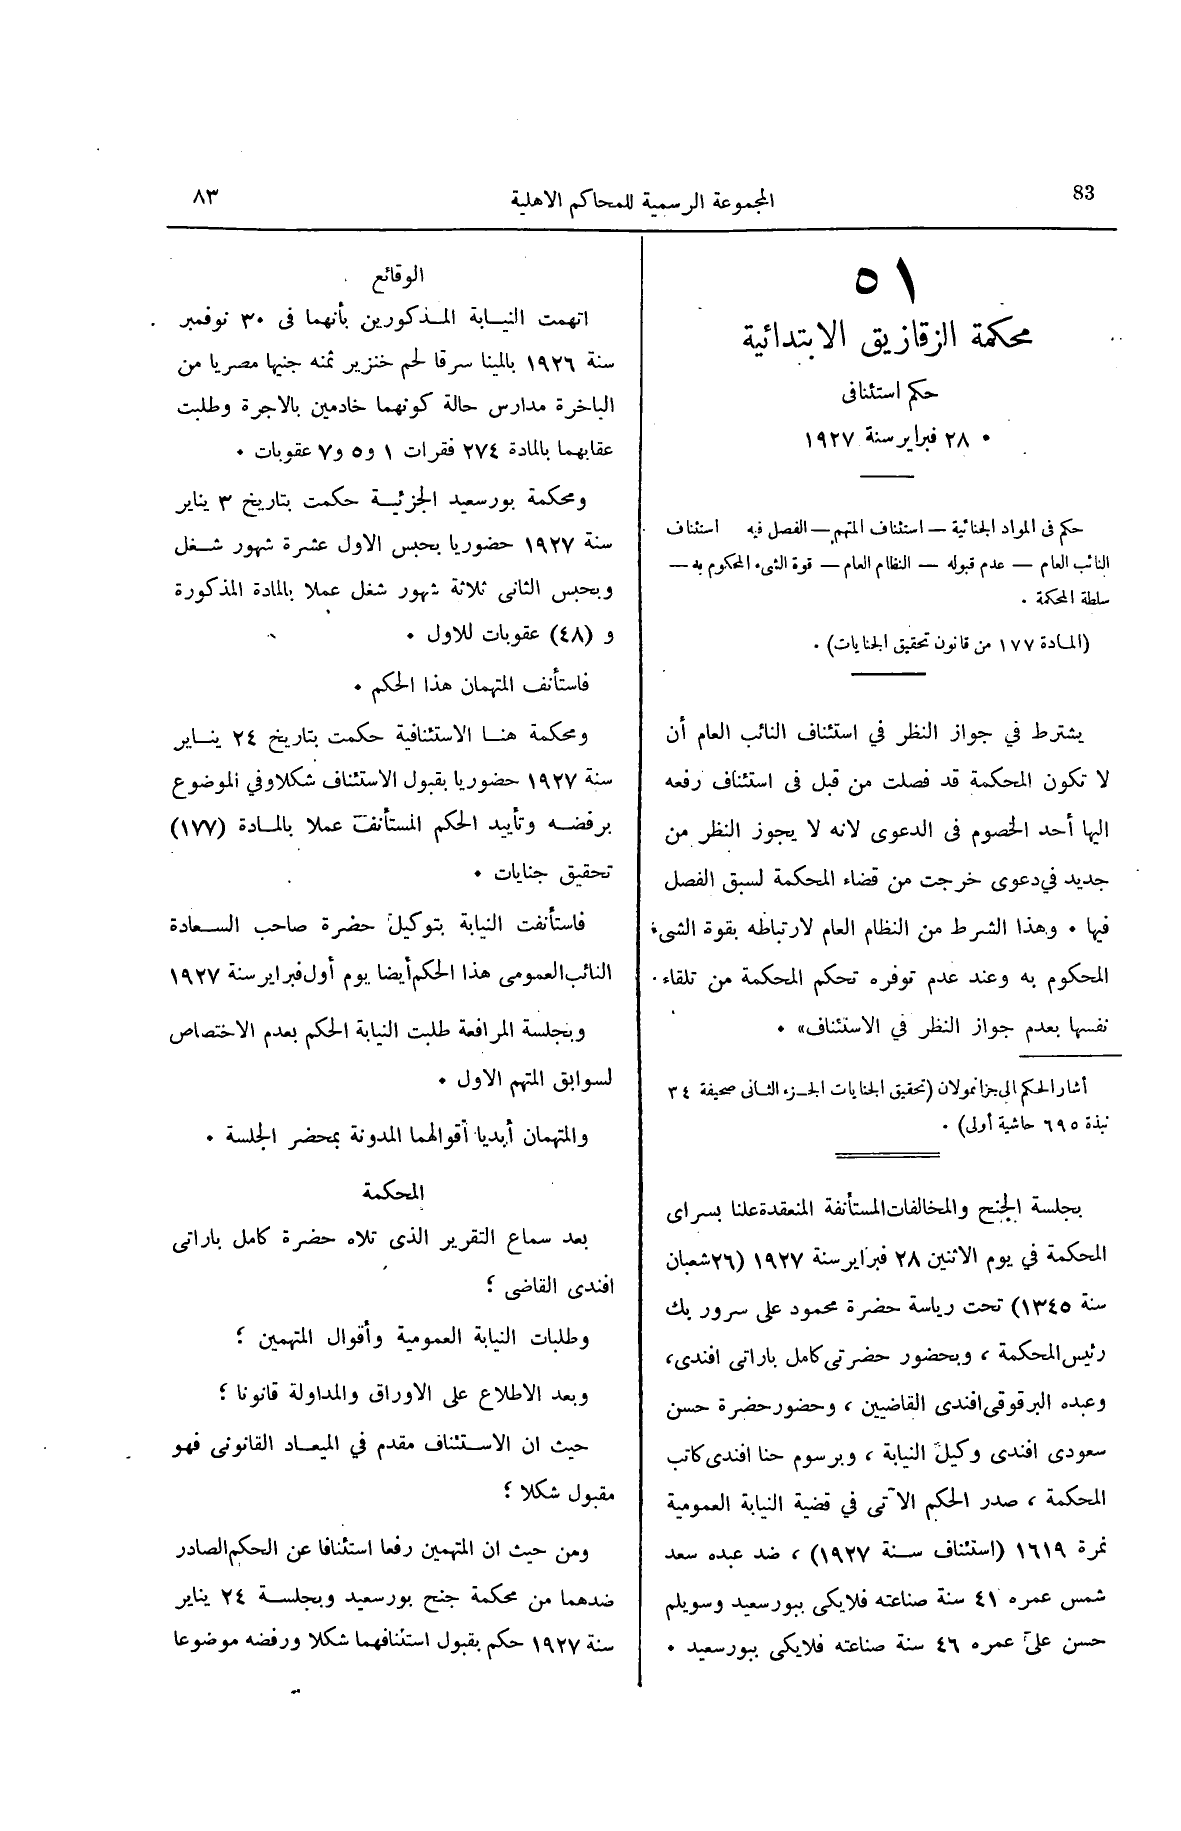 83
المجموعة الرسمية للمحاكم الاهلية
٨٣
٥١
محكمة الزقازيق الابتدائية
حكم استئنافى
٢٨ فبراير سنة ١٩٢٧ ٠
حكم فى المواد الجنائية — استئناف المتهم — الفصل فيه استئناف
النائب العام — عدم قبوله — النظام العام — قوة الشىء المحكوم به —
سلطة المحكمة ٠
(المادة ١٧٧ من قانون تحقيق الجنايات) ٠
يشترط في جواز النظر في استئناف النائب العام أن
لا تكون المحكمة قد فصلت من قبل فى استئناف رفعه
اليها أحد الخصوم فى الدعوى لانه لا يجوز النظر من
جديد في دعوى خرجت من قضاء المحكمة لسبق الفصل
فيها ٠ وهذا الشرط من النظام العام لارتباطه بقوة الشىء
المحكوم به وعند عدم توفره تحكم المحكمة من تلقاء
نفسها بعدم جواز النظر في الاستئناف» ٠
أشار الحكم الى جرانمولان (تحقيق الجنايات الجزء الثانى صحيفة ٣٤
نبذة ٦٩٥ حاشية أولى) ٠
بجلسة الجنح والمخالفات المستأنفة المنعقدة علنا بسراى
المحكمة في يوم الاثنين ٢٨ فبراير سنة ١٩٢٧ (٢٦ شعبان
سنة ١٣٤٥) تحت رياسة حضرة محمود على سرور بك
رئيس المحكمة ، وبحضور حضرتى كامل باراتى افندى،
وعبده البرقوقى افندى القاضيين ، وحضور حضرة حسن
سعودى افندى وكيل النيابة ، وبرسوم حنا افندى كاتب
المحكمة ، صدر الحكم الآتى في قضية النيابة العمومية
نمرة ١٦١٩ (استئناف سنة ١٩٢٧) ، ضد عبده سعد
شمس عمره ٤١ سنة صناعته فلايكى ببورسعيد وسويلم
حسن على عمره ٤٦ سنة صناعته فلايكى ببورسعيد ٠
الوقائع
اتهمت النيابة المذكورين بأنهما فى ٣٠ نوفمبر
سنة ١٩٢٦ بالمينا سرقا لحم خنزير ثمنه جنيها مصريا من
الباخرة مدارس حالة كونهما خادمين بالاجرة وطلبت
عقابهما بالمادة ٢٧٤ فقرات ١ و٥ و٧ عقوبات ٠
ومحكمة بورسعيد الجزئية حكمت بتاريخ ٣ يناير
سنة ١٩٢٧ حضوريا بحبس الاول عشرة شهور شغل
وبحبس الثانى ثلاثة شهور شغل عملا بالمادة المذكورة
و (٤٨) عقوبات للاول ٠
فاستأنف المتهمان هذا الحكم ٠
ومحكمة هنا الاستئنافية حكمت بتاريخ ٢٤ يناير
سنة ١٩٢٧ حضوريا بقبول الاستئناف شكلا وفي الموضوع
برفضه وتأييد الحكم المستأنف عملا بالمادة (١٧٧)
تحقيق جنايات ٠
فاستأنفت النيابة بتوكيل حضرة صاحب السعادة
النائب العمومى هذا الحكم أيضا يوم أول فبراير سنة ١٩٢٧
وبجلسة المرافعة طلبت النيابة الحكم بعدم الاختصاص
لسوابق المتهم الاول ٠
والمتهمان أبديا أقوالهما المدونة بمحضر الجلسة ٠
المحكمة
بعد سماع التقرير الذى تلاه حضرة كامل باراتى
افندى القاضى ؛
وطلبات النيابة العمومية وأقوال المتهمين ؛
وبعد الاطلاع على الاوراق والمداولة قانونا ؛
حيث ان الاستئناف مقدم في الميعاد القانونى فهو
مقبول شكلا ؛
ومن حيث ان المتهمين رفعا استئنافا عن الحكم الصادر
ضدهما من محكمة جنح بورسعيد وبجلسة ٢٤ يناير
سنة ١٩٢٧ حكم بقبول استئنافهما شكلا ورفضه موضوعا